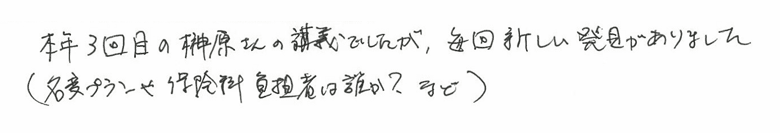 本年3回目の榊原さんの講義でしたが、毎回新しい発見がありました
(名変プランや保険料負担者は誰か? など)